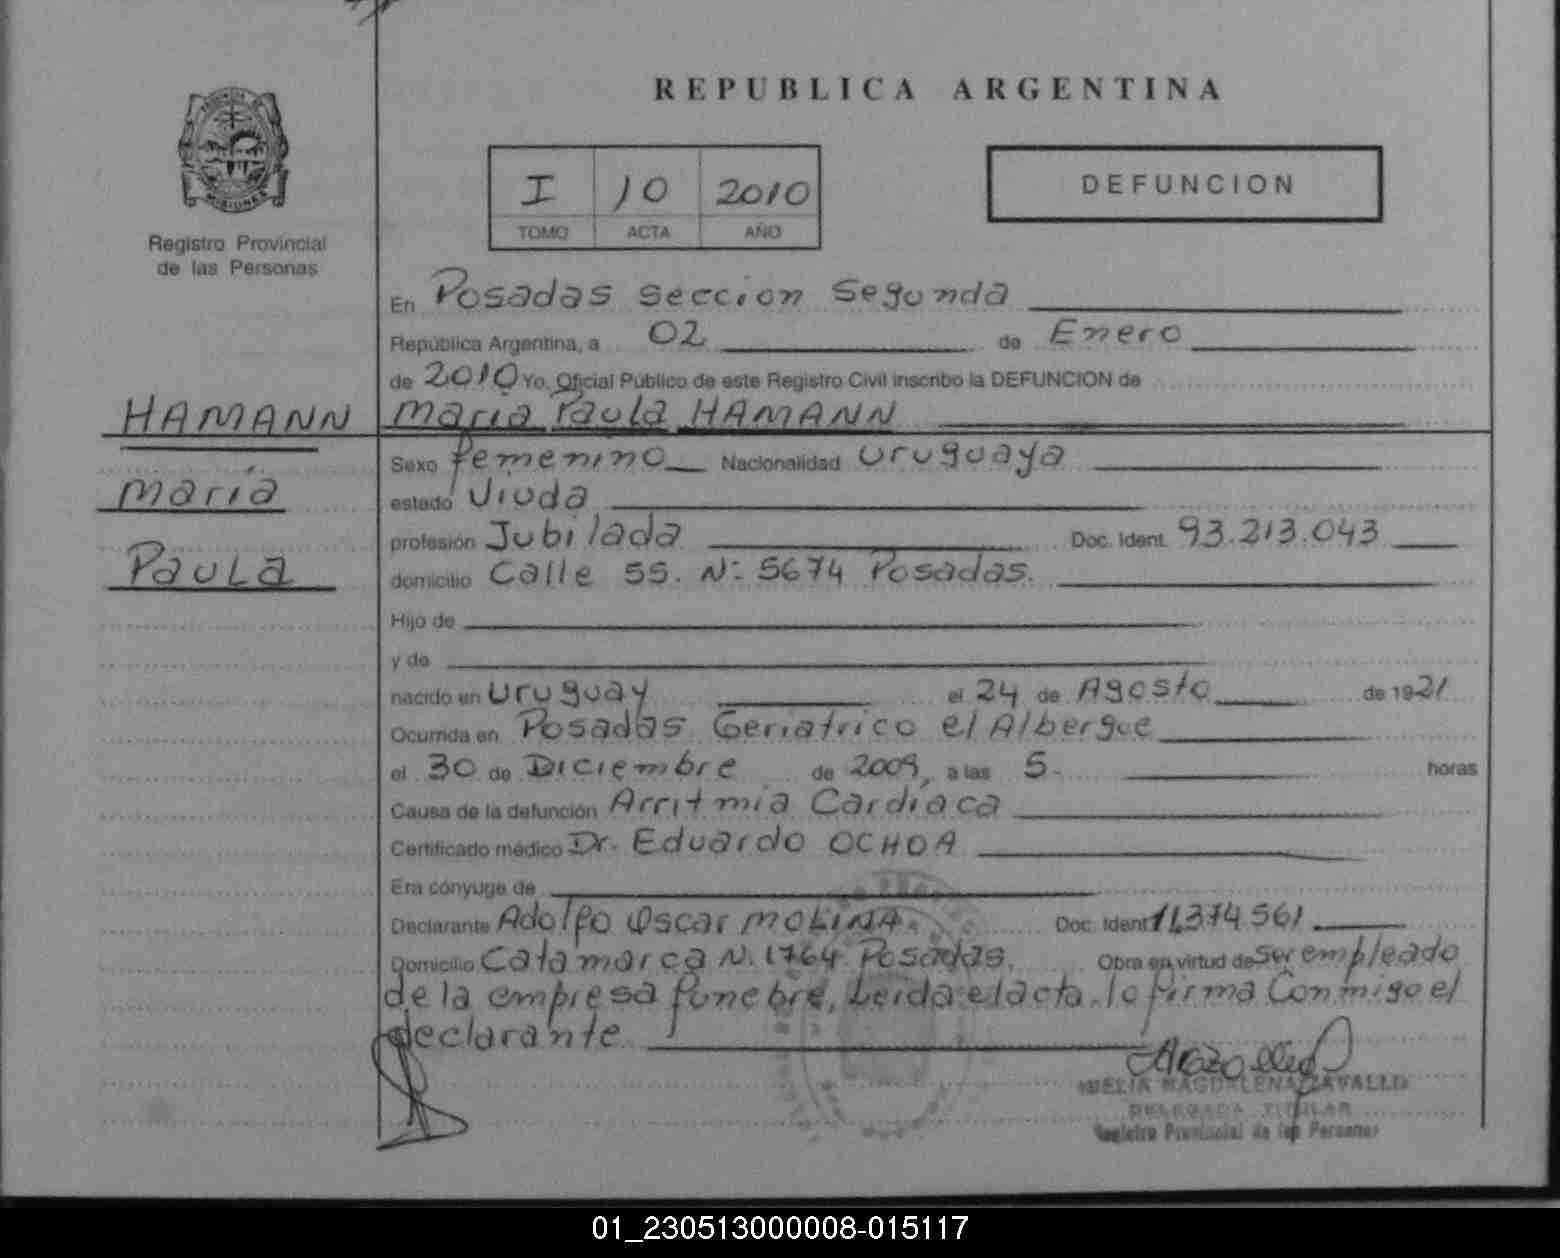 REPUBLICA ARGENTINA
PROVINCIA DE
MISIONES
Registro Provincial
de las Personas
I 10 2010
TOMO ACTA AÑO
DEFUNCION
En Posadas sección Segunda
República Argentina, a 02 de Enero
de 2010 Yo, Oficial Público de este Registro Civil inscribo la DEFUNCION de
HAMANN
María Paula HAMANN
Sexo femenino Nacionalidad Uruguaya
María
estado Viuda
profesión Jubilada Doc. Ident. 93.213.043
Paula
domicilio Calle 55. Nº 5674 Posadas.
Hijo de
y de
nacido en Uruguay el 24 de Agosto de 1921
Ocurrida en Posadas Geriatrico el Albergue
el 30 de Diciembre de 2009, a las 5. horas
Causa de la defunción Arritmia Cardiaca
Certificado médico Dr. Eduardo OCHOA
Era cónyuge de
Declarante Adolfo Oscar MOLINA. Doc. Ident 11.374.561
Domicilio Catamarca N. 1764 Posadas. Obra en virtud de Ser empleado
de la empresa funebre, Leida el acta, lo firma Conmigo el
declarante
MAGDALENA ZAVALLO
DELEGADA TITULAR
Registro Provincial de las Personas
01_230513000008-015117